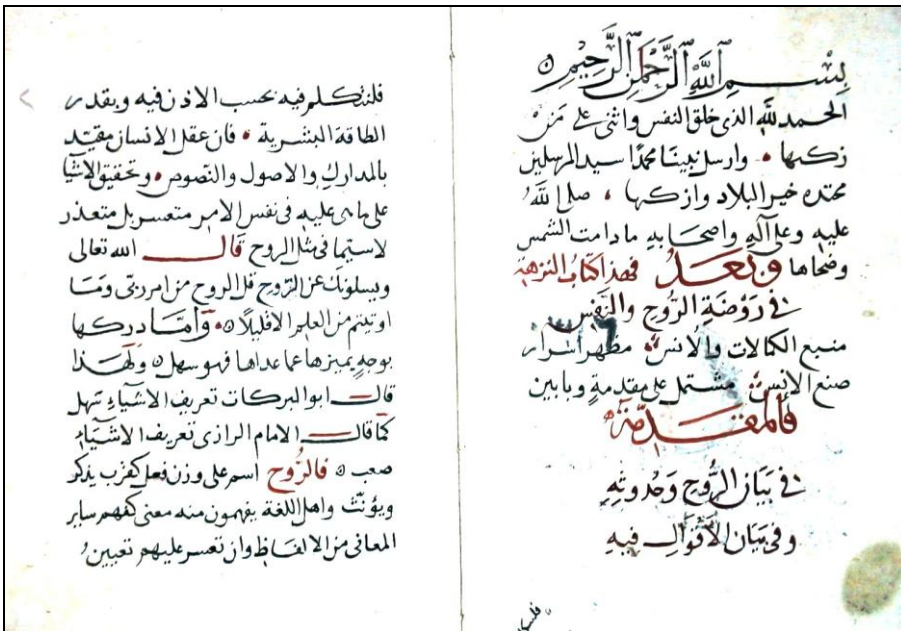 بِسْمِ اللَّهِ الرَّحْمَنِ الرَّحِيمِ
الحمد لله الذى خلق النفس واثنى على مَنْ
زكيها وارسل نبينا محمدًا سيد المرسلين
محتده خير البلاد وازكيها صلى اللَّهُ
عليه وعلى آلِهِ واصحابهِ مادامت الشمس
وضحاها وَبَعْدُ فهذا كتابُ النزهة
فى رَوْضَةِ الرُّوحِ والنَّفْسِ
منبع الكمالات والأنس مظهر اسرار
صنع الإنس مشتمل على مقدمةٍ وبابين
فَالْمُقَدِّمَة
فى بَيَانِ الرُّوحِ وَحُدُوثِهِ
وفى بَيَان الْأَقْوَالِ فيهِ
فلنتكلم فيه بحسب الاذن فيه وبقدر
الطاقة البشرية فان عقل الانسان مقيّد
بالمداركِ والاصول والنّصوص وتحقيق الاشيا
على ماهى عليه فى نفس الامر متعسر بل متعذر
لاسيّما فى مثل الروح قَالَ الله تعالى
ويسلونك عن الرّوح قل الروح من امر ربّى ومَا
اوتيتم من العلم الاقليلًا وَأمّا دركها
بوجهٍ يميزها عما عداها فهو سهل ولِهَذا
قال ابو البركات تعريف الاشياءِ سَهل
كما قال الامام الرازى تعريف الاشيَاءِ
صعب فالرُّوح اسم على وزن فعل كقرب يذكر
ويؤنّث واهل اللغة يفهمون منه معنى كفهم ساير
المعانى من الالفاظ وان تعسر عليهم تعيينُ